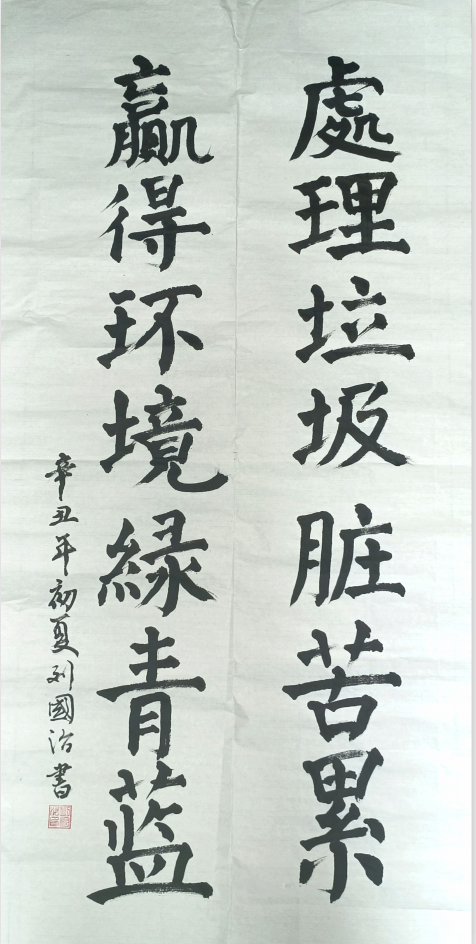 處理垃圾脏苦累
赢得环境緑青蓝
辛丑年初夏刘國治書